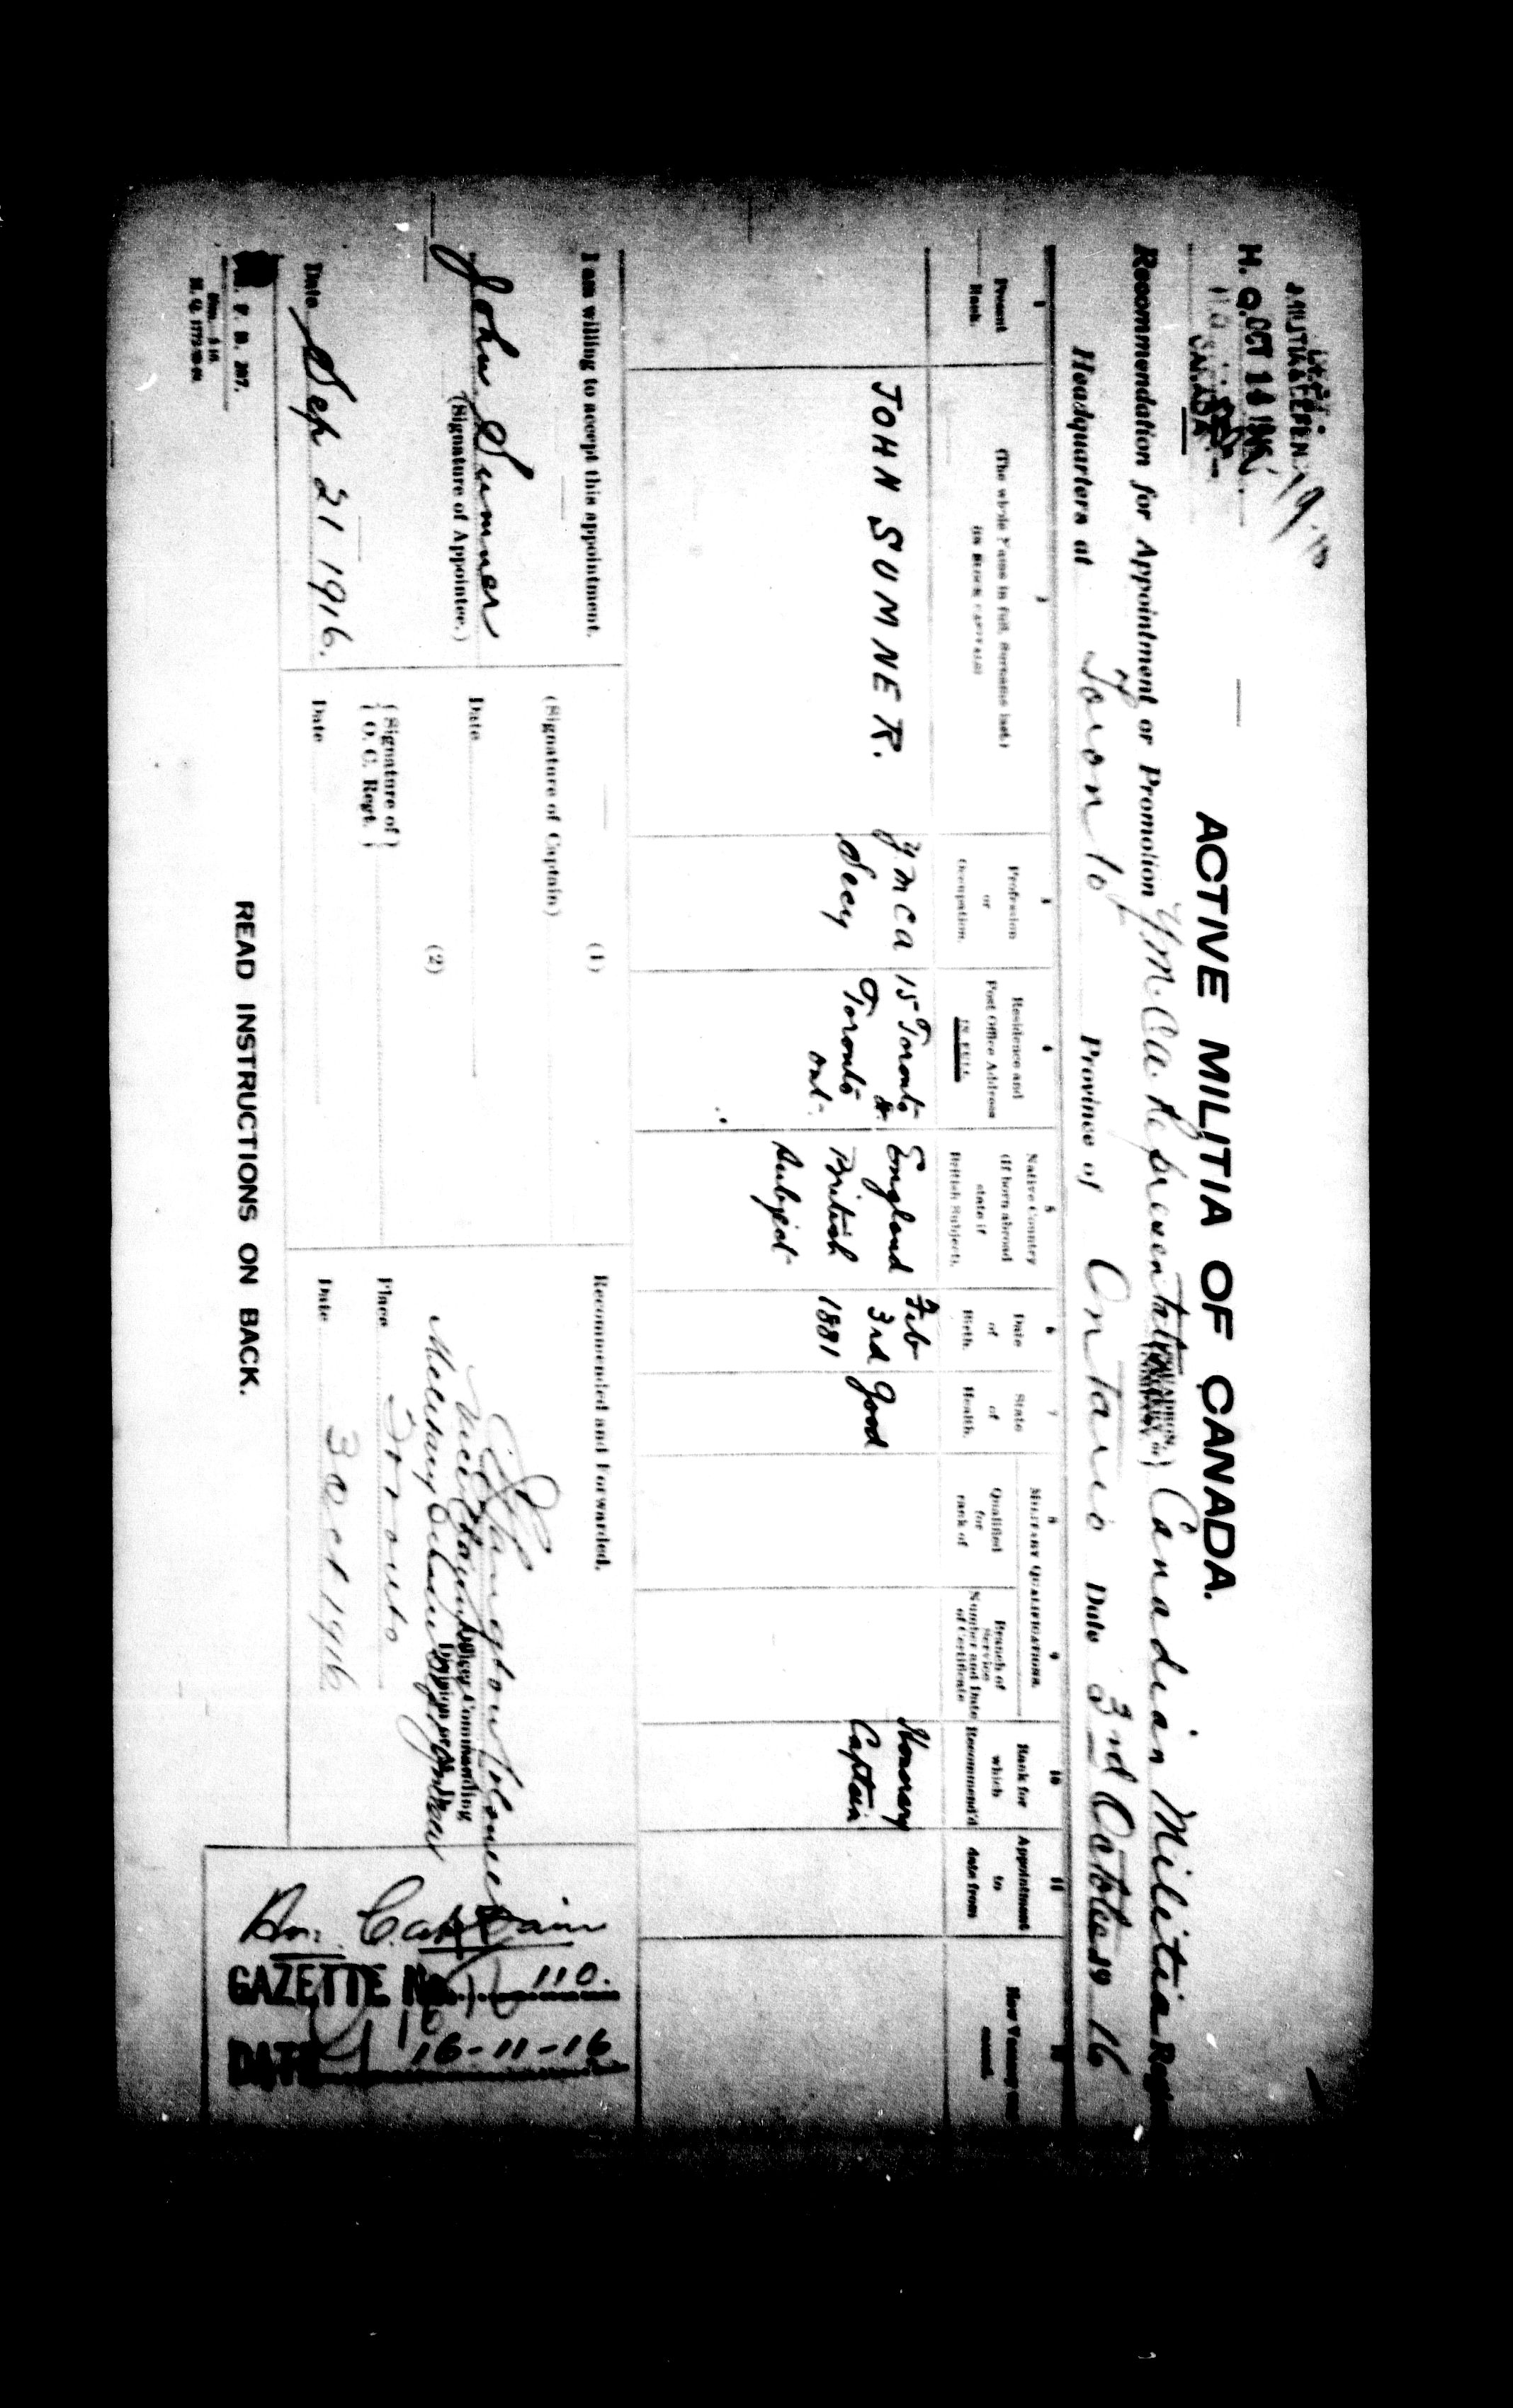 MILITIA & DEFEN
H. Q. OCT 14
CANADA
ACTIVE MILITIA OF CANADA.
Recommendation for Appointment or Promotion Y.M.C.A. Representative Canadian Militia
Headquarters at Toronto Province of Ontario Date 3rd October 19 16
1 2 3 4 5 6 7 8 9 10 11
MILITARY QUALIFICATIONS.
Present Rank.
(The whole Name in full, Surname last)
(IN BLOCK CAPITALS)
Profession or Occupation.
Residence and Post Office Address IN FULL
Native Country (If born abroad state if British Subject).
Date of Birth.
State of Health.
Qualified for rank of
Branch of Service Number and Date of Certificate
Rank for which Recommend'd
Appointment to date from
How Vacancy
JOHN SUMNER.
Y.M.C.A Secy
15 Toronto St. Toronto Ont-
England British Subject
Feb 3rd 1881
Good
Honorary Captain
I am willing to accept this appointment.
John Sumner
(Signature of Appointee.)
Date Sep 21 1916.
(1)
(Signature of Captain)
Date
(2)
{Signature of O. C. Regt.}
Date
Recommended and Forwarded.
Officer Commanding
Place Toronto
Date 3 Oct 1916
Hon: Captain
GAZETTE No. 110.
DATE 16-11-16
F. B. 287.
READ INSTRUCTIONS ON BACK.